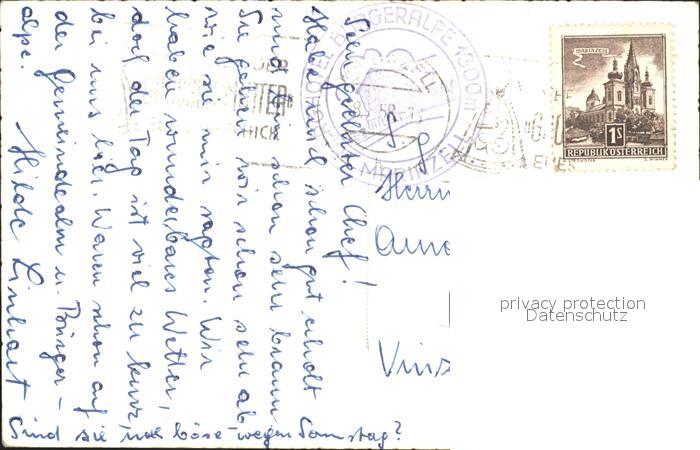 Sehr geehrter Chef!
Habe mich schon gut erholt
und bin schon sehr braun.
Sie gehen mir schon sehr ab,
wie sie mir sagten. Wir
haben wunderbares Wetter,
doch der Tag ist viel zu kurz,
bei uns hier. Waren schon auf
der Gemeindealm u. Bürger-
alpe.
Hilde Linhart
Sind sie, noch böse wegen Samstag?
BÜRGERALPE 1300m
MARIAZELL
58
S. g.
Herrn
Vins
MARIAZELL
1S
REPUBLIK ÖSTERREICH
privacy protection
Datenschutz